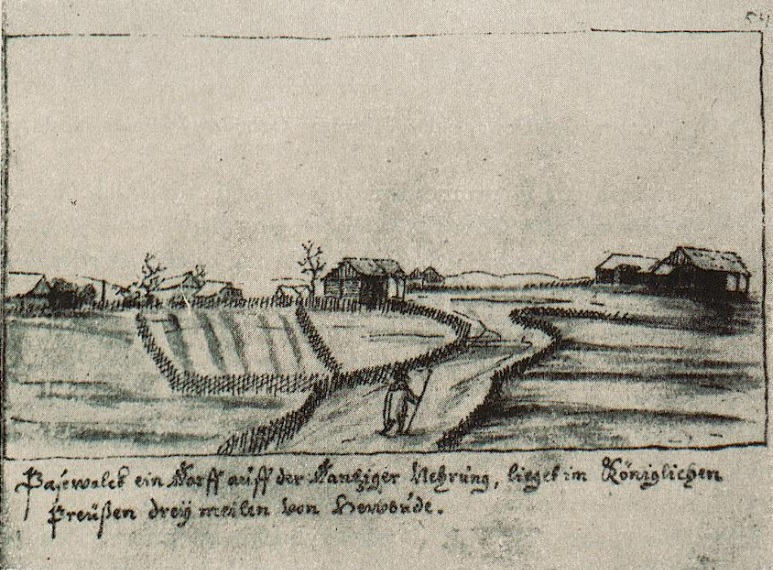 54
Pasewalck ein Dorff auff der Dantziger Nehrung, lieget im Königlichen
Preüßen dreÿ meilen von Heubude.